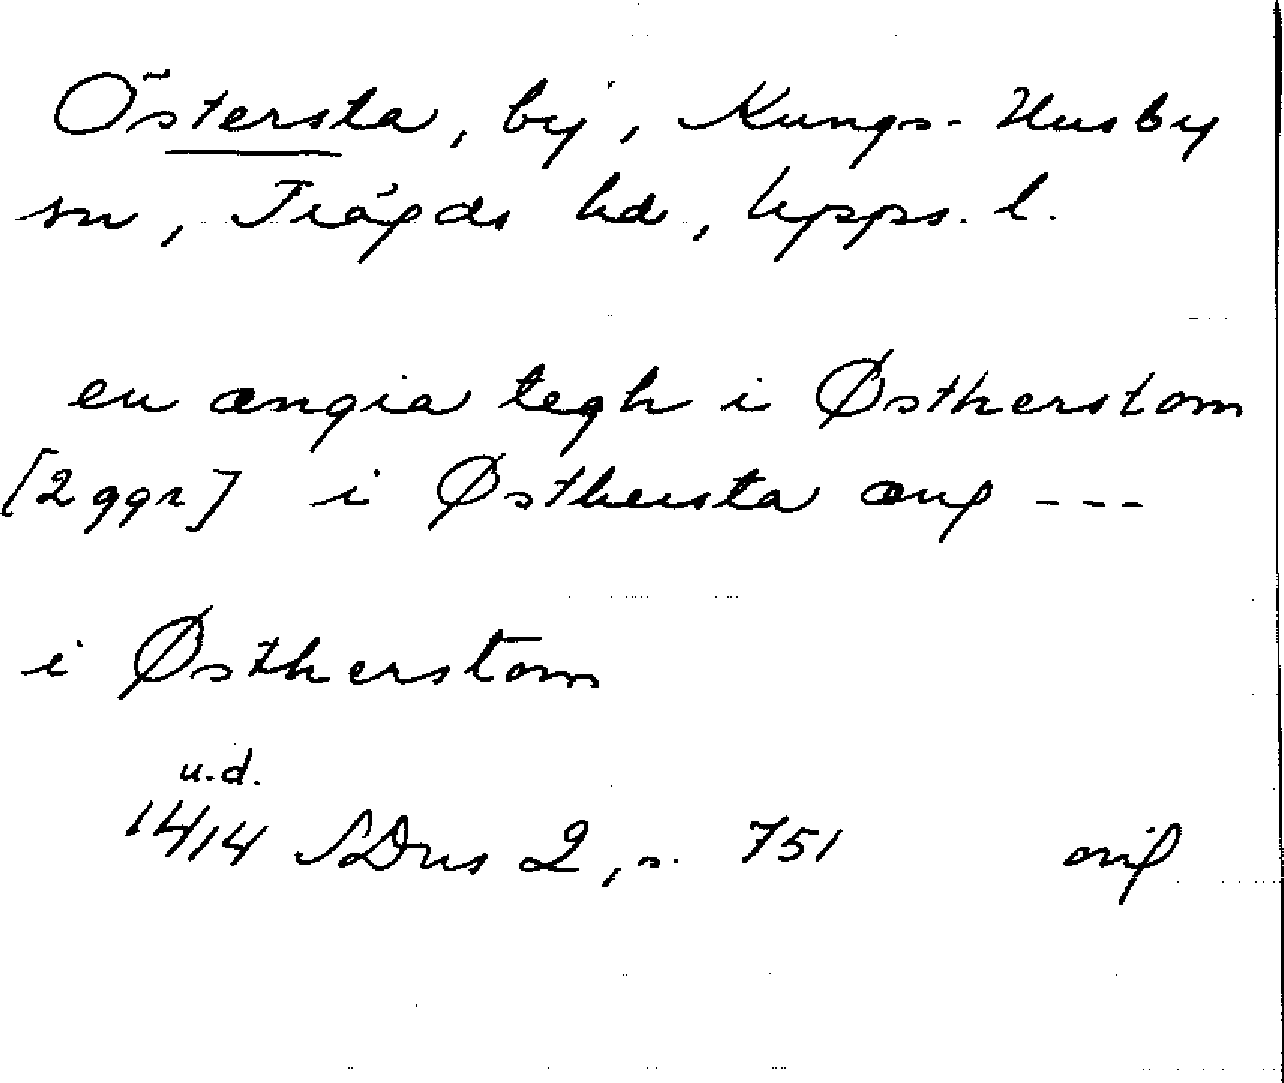 Östersta, by, Kungs-Husby
sn, Trögds hd, Upps. l.
en ængia tegh i Østherstom
[2 ggr] i Østhersta æng ---
i Østherstom
u.d.
1414 SDns 2, s. 751 orig